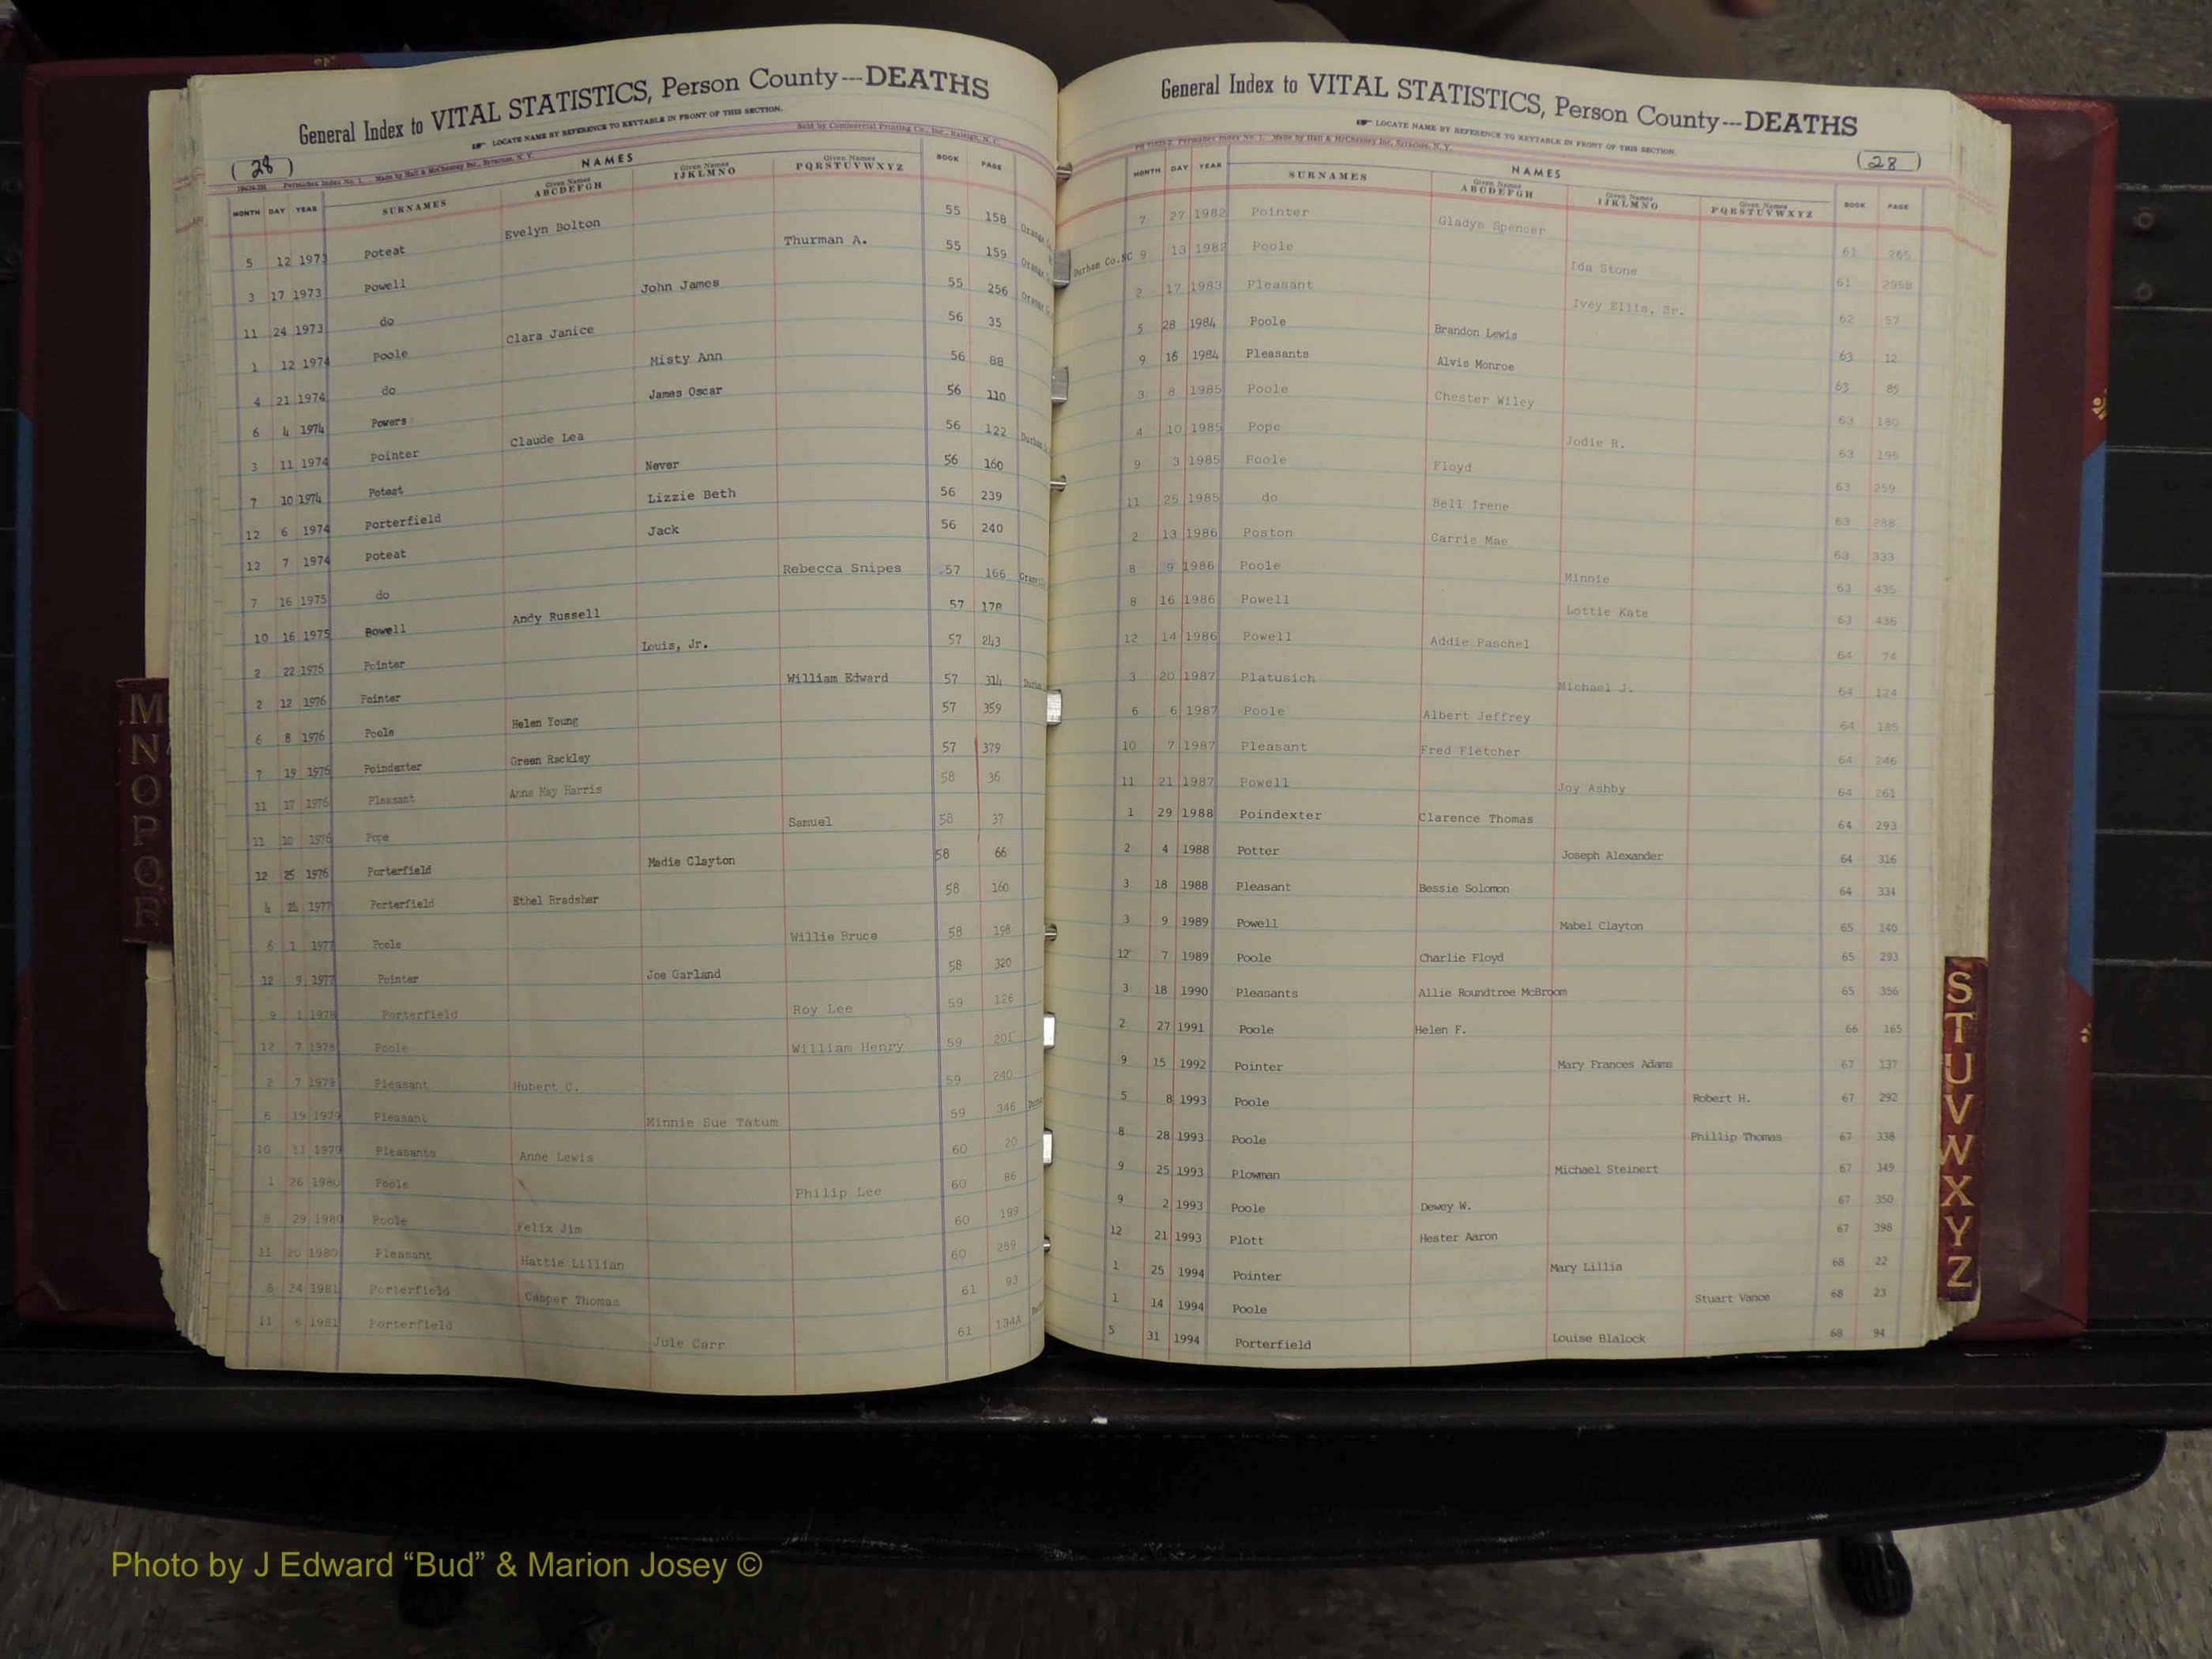 General Index to VITAL STATISTICS, Person County---DEATHS
LOCATE NAME BY REFERENCE TO KEYTABLE IN FRONT OF THIS SECTION.
Sold by Commercial Printing Co., Inc., Raleigh, N. C.
(28)
Permanex Index No. 1. Made by Hall & McChesney Inc., Syracuse, N. Y.
NAMES
MONTH DAY YEAR SURNAMES Given Names ABCDEFGH Given Names IJKLMNO Given Names PQRSTUVWXYZ BOOK PAGE
5 12 1973 Poteat Evelyn Bolton 55 158 Orange
3 17 1973 Powell Thurman A. 55 159 Orange
11 24 1973 do John James 55 256 Orange
1 12 1974 Poole Clara Janice 56 35
4 21 1974 do Misty Ann 56 88
6 4 1974 Powers James Oscar 56 110
3 11 1974 Pointer Claude Lea 56 122 Durham
7 10 1974 Poteat Never 56 160
12 6 1974 Porterfield Lizzie Beth 56 239
12 7 1974 Poteat Jack 56 240
7 16 1975 do Rebecca Snipes 57 166
10 16 1975 Powell Andy Russell 57 178
2 22 1976 Pointer Louis, Jr. 57 243
2 12 1976 Pointer William Edward 57 314 Durham
6 8 1976 Poole Helen Young 57 359
7 19 1976 Poindexter Green Rackley 57 379
11 17 1976 Pleasant Anna May Harris 58 36
11 10 1976 Pope Samuel 58 37
12 25 1976 Porterfield Madie Clayton 58 66
4 24 1977 Porterfield Ethel Bradsher 58 160
6 1 1977 Poole Willie Bruce 58 198
12 9 1977 Pointer Joe Garland 58 320
9 1 1978 Porterfield Roy Lee 59 126
12 7 1978 Poole William Henry 59 201
2 7 1979 Pleasant Hubert C. 59 240
6 19 1979 Pleasant Minnie Sue Tatum 59 346
10 11 1979 Pleasants Anne Lewis 60 20
1 26 1980 Poole Philip Lee 60 86
8 29 1980 Poole Felix Jim 60 199
11 20 1980 Pleasant Hattie Lillian 60 259
8 24 1981 Porterfield Casper Thomas 61 93
11 6 1981 Porterfield Jule Carr 61 134A
General Index to VITAL STATISTICS, Person County---DEATHS
LOCATE NAME BY REFERENCE TO KEYTABLE IN FRONT OF THIS SECTION.
(28)
Permanex Index No. 1. Made by Hall & McChesney Inc, Syracuse, N. Y.
NAMES
MONTH DAY YEAR SURNAMES Given Names ABCDEFGH Given Names IJKLMNO Given Names PQRSTUVWXYZ BOOK PAGE
7 27 1982 Pointer Gladys Spencer 61 265
Durham Co.NC 9 13 1982 Poole Ida Stone 61 295B
2 17 1983 Pleasant Ivey Ellis, Sr. 62 57
5 28 1984 Poole Brandon Lewis 63 12
9 16 1984 Pleasants Alvis Monroe 63 85
3 8 1985 Poole Chester Wiley 63 180
4 10 1985 Pope Jodie R. 63 195
9 3 1985 Poole Floyd 63 259
11 25 1985 do Bell Irene 63 288
2 13 1986 Poston Carrie Mae 63 333
8 9 1986 Poole Minnie 63 435
8 16 1986 Powell Lottie Kate 63 436
12 14 1986 Powell Addie Paschel 64 74
3 20 1987 Platusich Michael J. 64 124
6 6 1987 Poole Albert Jeffrey 64 185
10 7 1987 Pleasant Fred Fletcher 64 246
11 21 1987 Powell Joy Ashby 64 261
1 29 1988 Poindexter Clarence Thomas 64 293
2 4 1988 Potter Joseph Alexander 64 316
3 18 1988 Pleasant Bessie Solomon 64 334
3 9 1989 Powell Mabel Clayton 65 140
12 7 1989 Poole Charlie Floyd 65 293
3 18 1990 Pleasants Allie Roundtree McBroom 65 356
2 27 1991 Poole Helen F. 66 165
9 15 1992 Pointer Mary Frances Adams 67 137
5 8 1993 Poole Robert H. 67 292
8 28 1993 Poole Phillip Thomas 67 338
9 25 1993 Plowman Michael Steinert 67 349
9 2 1993 Poole Dewey W. 67 350
12 21 1993 Plott Hester Aaron 67 398
1 25 1994 Pointer Mary Lillia 68 22
1 14 1994 Poole Stuart Vance 68 23
5 31 1994 Porterfield Louise Blalock 68 94
M
N
O
P
Q
R
S
T
U
V
W
X
Y
Z
Photo by J Edward “Bud” & Marion Josey ©